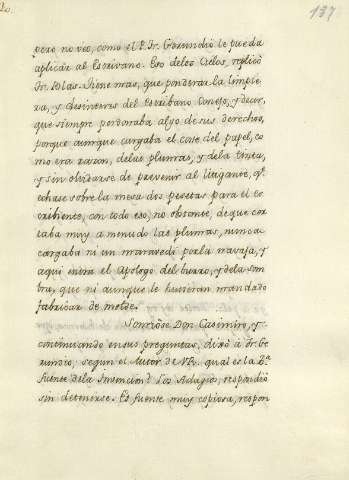 137
pero no veo, como el P. Fr. Gerundio le pueda
aplicar al Escrivano. Eso de los Cielos, replicó
Fr. Blas. Tiene mas, que ponderar la limpie
za, y desinteres del Escribano Conejo, y decir,
que siempre perdonaba algo de sus derechos,
porque aunque cargaba el coste del papel, co
mo era razon, de las plumas, y de la tinta,
y sin olvidarse de prevenir al litigante, qe.
echase sobre la mesa dos pesetas para el es
cribiente, con todo eso, no obstante, de que cor
taba muy a menudo las plumas, nunca
cargaba ni un maravedi por la navaja, y
aqui entra el Apologo del buzo, y de la som
bra, que ni aunque le hubieran mandado
fabricar de molde.
Sonrióse Don Casimiro, y
continuando en sus preguntas, dixo à Fr. Ge
rundio; segun el Autor de Vm. qual es la 2ª
fuente de la Invencion? Los Adagios, respondió
sin detenerse. Es fuente muy copiosa, respon